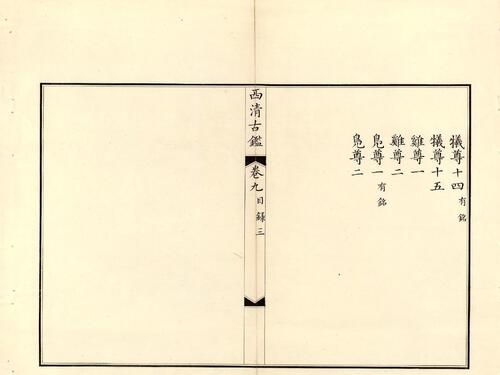 犧尊十四 有銘
犧尊十五
雞尊一
雞尊二
鳧尊一 有銘
鳧尊二
西清古鑑
卷九 目錄 三